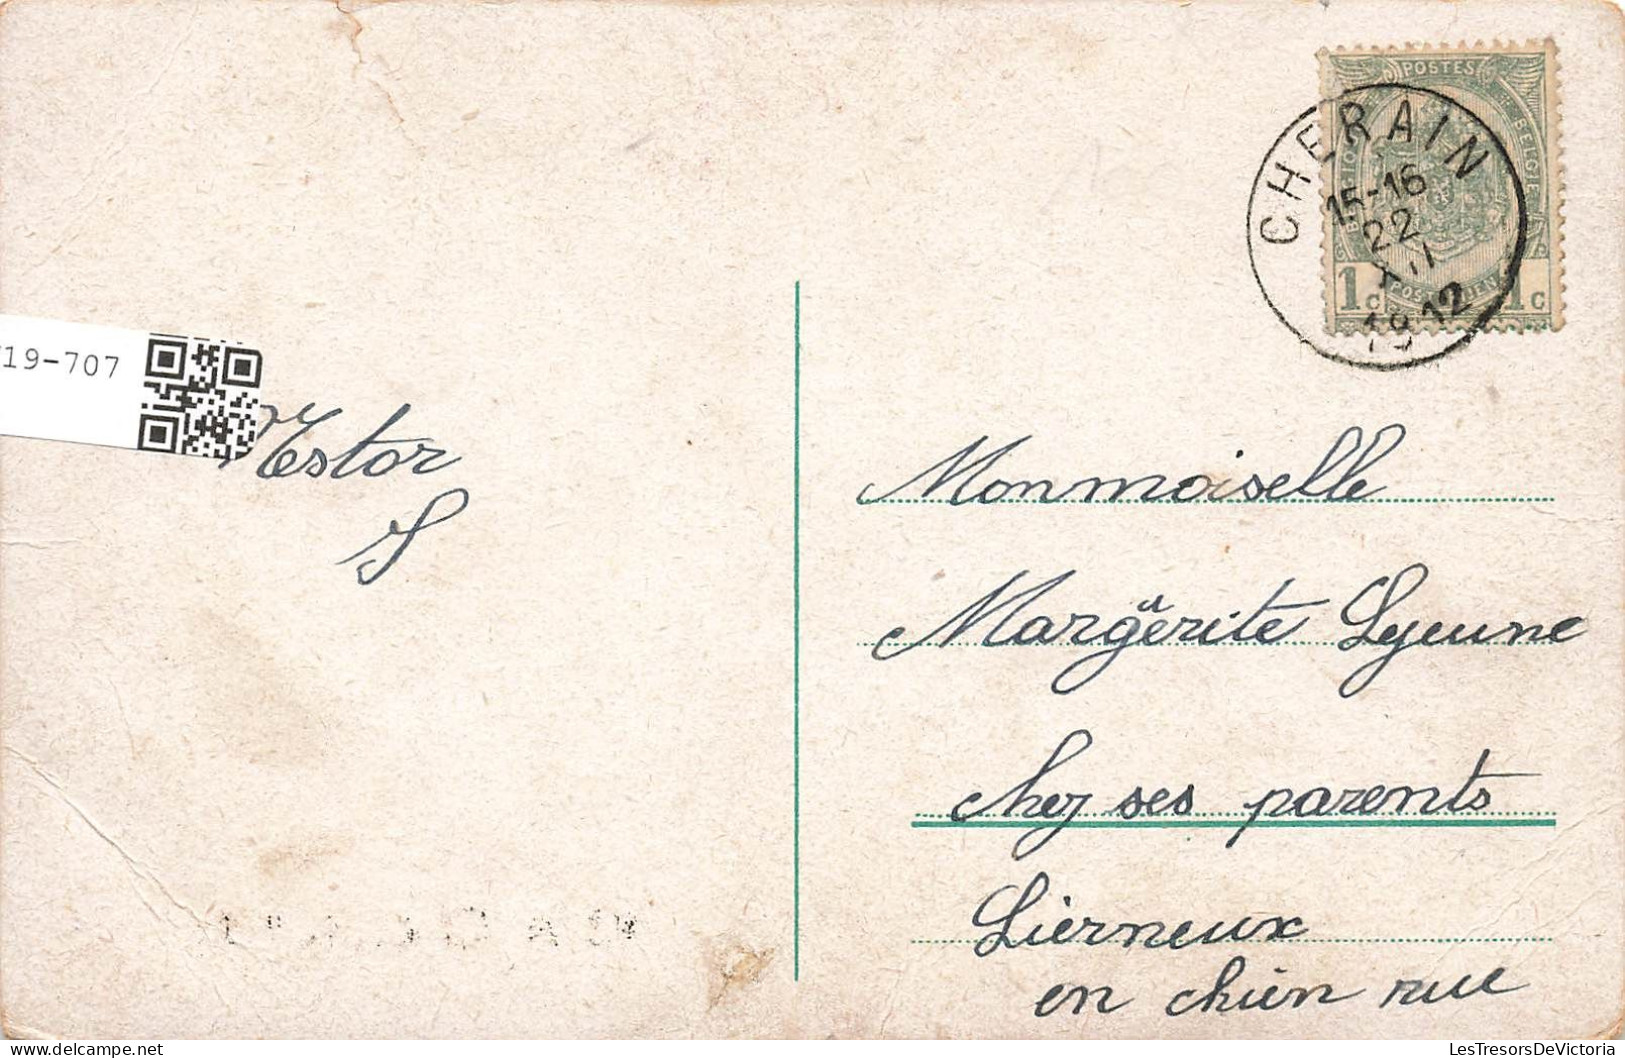 POSTES
BELGIQUE BELGIE
1 C POSTERIJEN 1 C
CHERAIN
15-16
22
XII
1912
19-707
Nestor
S
Monmoiselle
Margërite Lejeune
chez ses parents
Lierneux
en chien rue
LesTresorsDeVictoria